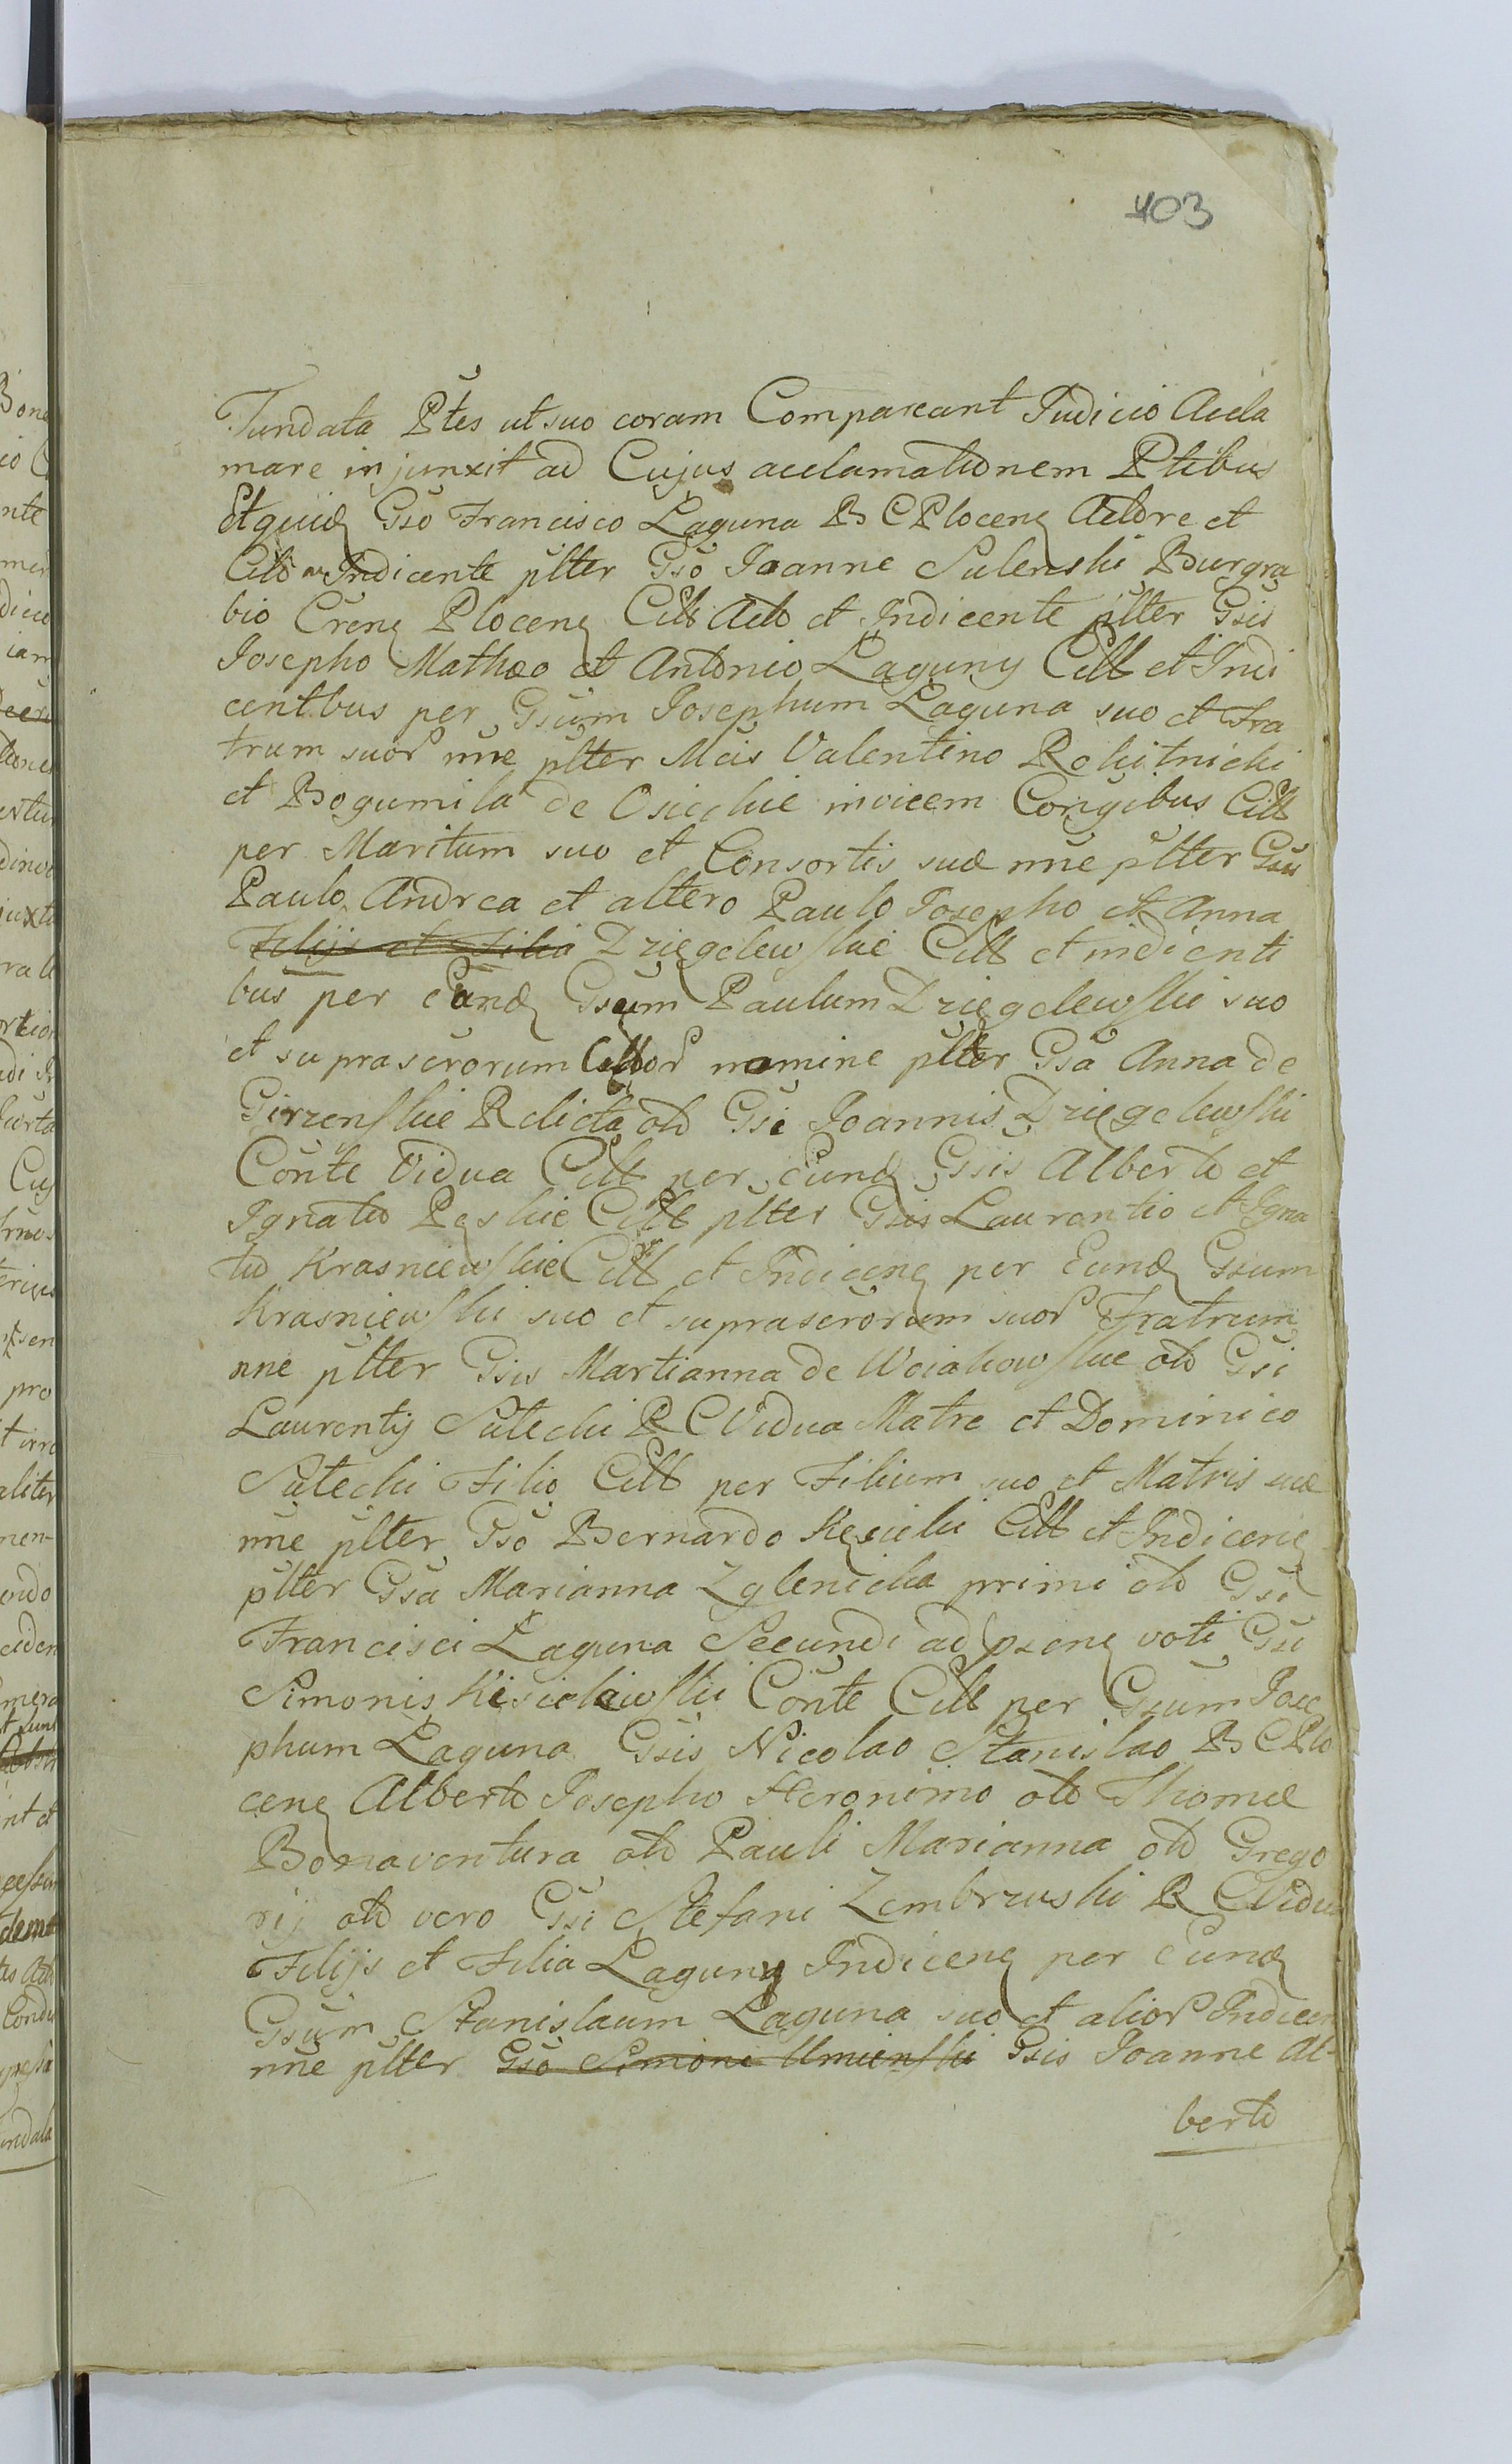 403
Fundata Ptes ut suo coram Compareant Judicio Accla
mare injunxit ad Cujus acclamationem Ptibus
Et quid Gso Francisco Laguna B C Plocen Actore et
Citto Indicente plter Gso Joanne Sulenski Burgra
bio Cren Plocen Citt Acto et Indicente plter Gsis
Josepho Mathæo et Antonio Laguny Citt et Indi
centbus per Gsum Josephum Laguna suo et Fra
trum suor nne plter Mcis Valentino Rokitnicki
et Bogumila de Osieckie invicem Congibus Citt
per Maritum suo et Consortis suæ nne plter Gsis
Paulo Andrea et altero Paulo Josepho et Anna
Filijs et Filia Dziegelewskie Citt et indicenti
bus per Eund Gsum Paulum Dziegelewski suo
et suprascrorum Cittor nomine plter Gsa Anna de
Girzenskie Relicta olo Gsi Joannis Dziegelewski
Conte Vidua Citt per Eund Gsis Alberto et
Ignatio Peskie Citt plter Gsis Laurentio et Igna
tio Krasniewskie Citt et Indicen per Eund Gsum
Krasniewski suo et suprascrorum suor Fratrum
nne plter Gsis Martianna de Woiakowskie olo Gsi
Laurentij Sutecki R C Vidua Matre et Dominico
Sutecki Filio Citt per Filium suo et Matris suæ
nne plter Gso Bernardo Kesicki Citt et Indicen
plter Gsa Marianna Zglenicka primi olo Gsi
Francisci Laguna Secundi ad psens voti Gsi
Simonis Kisielewski Conte Citt per Gsum Jose
phum Laguna Gsis Nicolao Stanislao B C Plo
cen Alberto Josepho Heronimo olo Thomæ
Bonaventura olo Pauli Marianna olo Grego
rij olo vero Gsi Stefani Zembrzuski R C Vidua
Filijs et Filia Laguny Indicen per Eund
Gsum Stanislaum Laguna suo et alior Indicen
nne plter Gso Simone Umienski Gsis Joanne Al-
berto